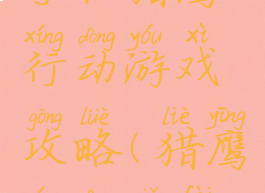 xíng dòng yóu xì
行动游戏
gōng lüè liè yīng
攻略(猎鹰